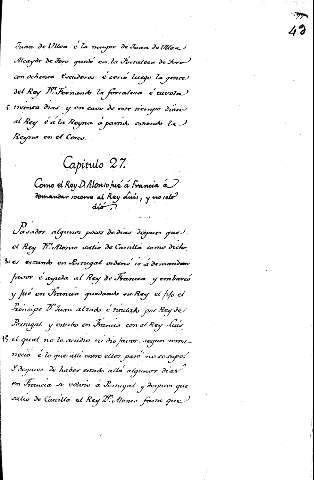 43
Juan de Ulloa é la muger de Juan de Ulloa
Alcayde de Toro quedó en la Fortaleza de Toro
con ochenta Escuderos é cercó luego la gente
del Rey Dn. Fernando la fortaleza é tuvola
días y en cavo de este tiempo dieron
al Rey é á la Reyna á partido estando la
Reyna en el Cerco.
Capitulo 27.
Como el Rey D. Alonso fué á Francia á
demandar socorro al Rey Luis, y no selo
dió.
Pasados algunos pocos de dias despues que
el Rey Dn. Alonso salio de Castilla como dicho
es estando en Portugal ordenó ir á demandar
favor é ayuda al Rey de Francia y embarcó
y fué en Francia quedando en Rey el fijo el
Principe Dn. Juan alzado é por Rey de
Portugal y estubo en Francia con el Rey Luis
el qual no le acudio ni dio favor segun
é lo que alli entre ellos pasó no se supo
Y despues de haber estado allá algunos dias
en Francia se volvio á Portugal y despues que
salio de Castilla el Rey Dn. Alonso fasta que